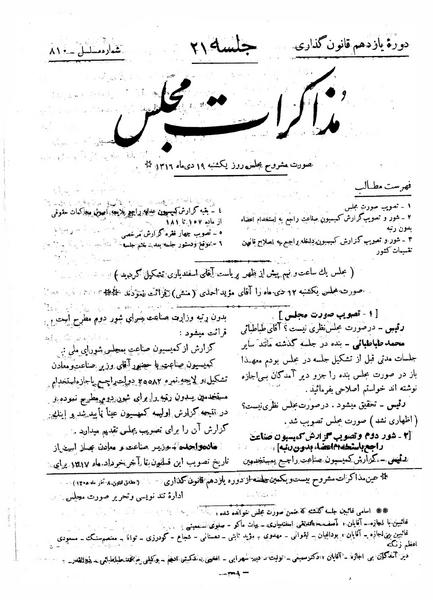 دورۀ یازدهم قانون گذاری
جلسه ۲۱
شماره مسلسل - ۸۱۰
مذاکرات مجلس
صورت مشروح مجلس روز یکشنبه ۱۹ دی ماه ۱۳۱۶
فهرست مطالب
۱ - تصویب صورت مجلس
۲ - شور و تصویب گزارش کمیسیون صناعت راجع به استخدام اعضاء
بدون رتبه
۳ - شور و تصویب گزارش کمیسیون داخله راجع به اصلاح قانون
تقسیمات کشور
۴ - بقیه گزارش کمیسیون عدلیه راجع بلایحه اصول محاکمات حقوقی
از ماده ۱۵۲ تا ۱۸۱
۵ - تصویب چهار فقره گزارش مرخصی
۶ - موقع و دستور جلسه بعد - ختم جلسه
( مجلس یک ساعت و نیم پیش از ظهر بریاست آقای اسفندیاری تشکیل گردید )
صورت مجلس یکشنبه ۱۲ دی ماه را آقای مؤید احمدی (منشی) قرائت نمودند
[ ۱ - تصویب صورت مجلس ]
رئیس - در صورت مجلس نظری نیست؟ آقای طباطبائی
محمد طباطبائی - در جلسه گذشته مانند سایر
جلسات مدتی قبل از تشکیل جلسه در مجلس بودم معهذا
باز در صورت مجلس بنده را جزو دیر آمدگان بی اجازه
نوشته اند خواستم اصلاحی بفرمائید .
رئیس - تحقیق میشود . در صورت مجلس نظری نیست؟
( اظهاری نشد ) صورت مجلس تصویب شد .
[ ۲ - شور دوم و تصویب گزارش کمیسیون صناعت
راجع باستخدام اعضاء بدون رتبه ]
رئیس - گزارش کمیسیون صناعت راجع بمستخدمین
بدون رتبه وزارت صناعت برای شور دوم مطرح است
قرائت میشود :
گزارش از کمیسیون صناعت بمجلس شورای ملی
کمیسیون صناعت با حضور آقای وزیر صناعت و معادن
تشکیل و لایحه نمره ۲۵۵۸۲ دولت راجع باجازه استخدام
مستخدمین بدون رتبه را برای شور دوم مطرح نموده و
در نتیجه گزارش اولیه کمیسیون عیناً تأیید شد و اینک
گزارش آن را برای تصویب مجلس تقدیم میدارد .
ماده واحده - وزیر صناعت و معادن مجاز است از
تاریخ تصویب این قانون تا آخر خرداد ماه ۱۳۱۷ برای
عین مذاکرات مشروح بیست و یکمین جلسه از دوره یازدهم قانون گذاری
ادارۀ تند نویسی و تحریر صورت مجلس
اسامی غائبین جلسه گذشته که ضمن صورت مجلس خوانده شده :